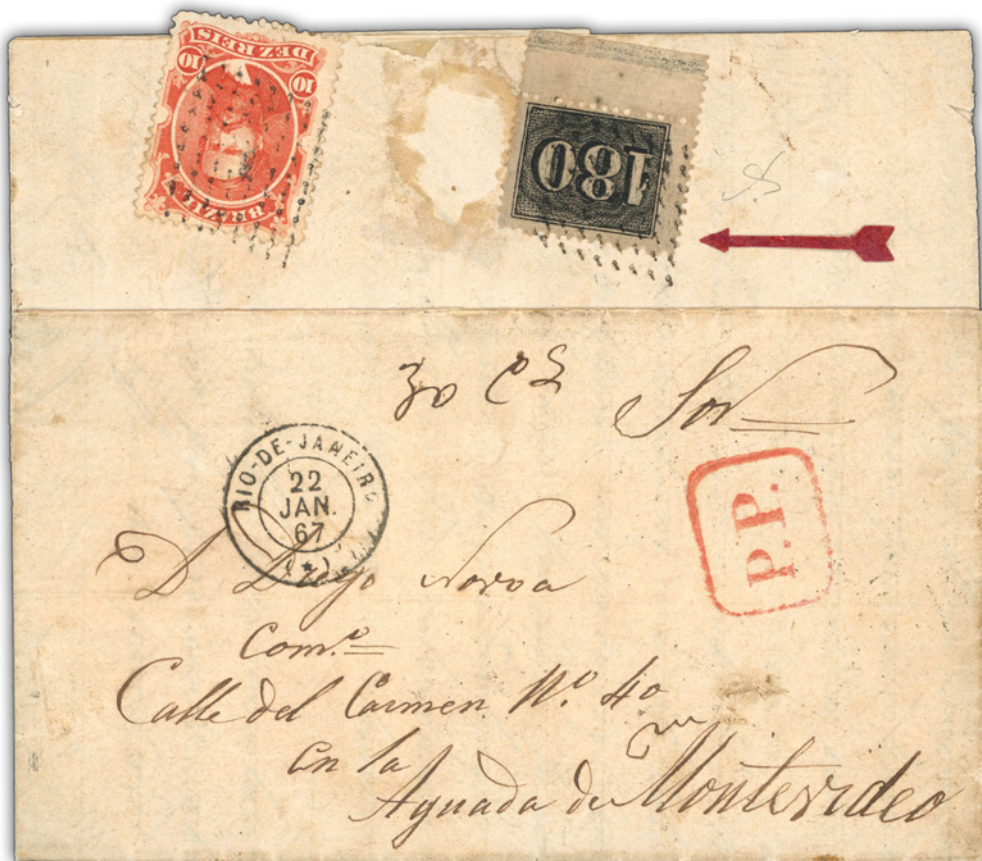 DEZ REIS
10 10
BRAZIL
180
30 Cs
Sor
RIO-DE-JANEIRO
22
JAN.
67
P.P.
D Diego Novoa
Com.o
Calle del Carmen No. 40
en la
Aguada de Montevideo